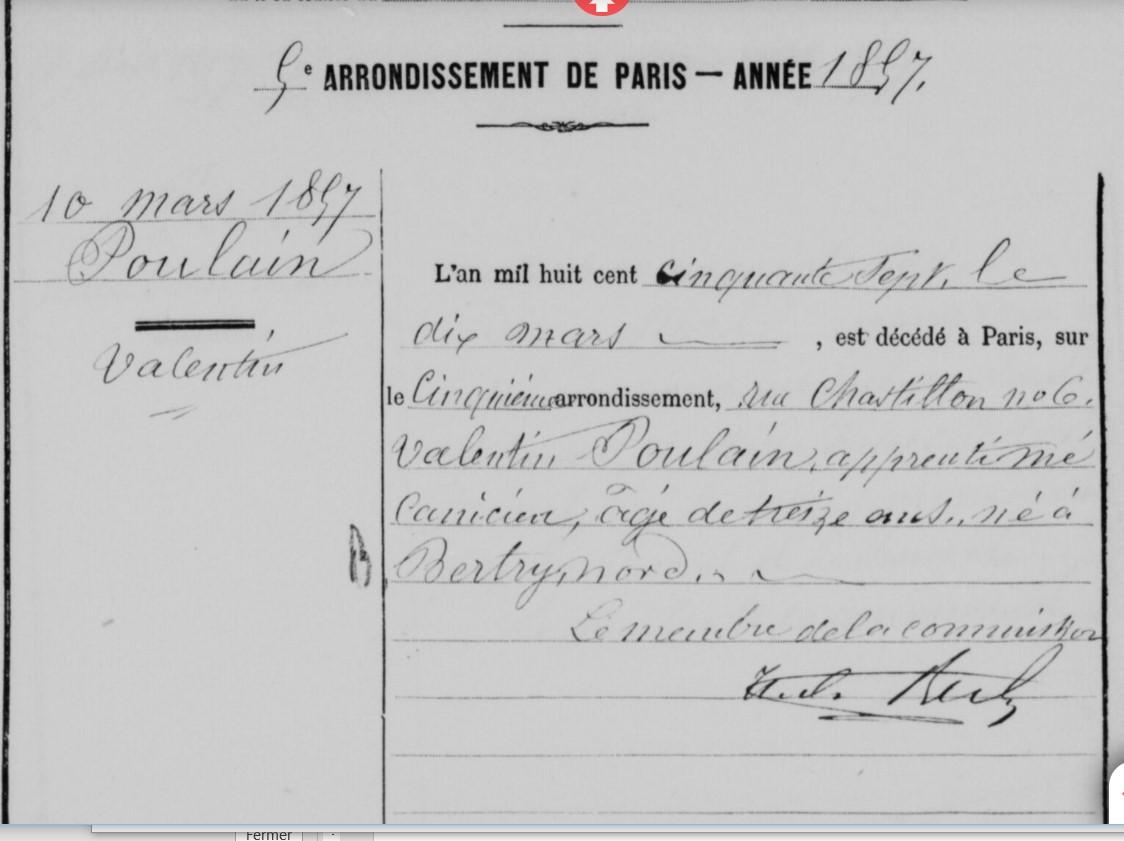 5e ARRONDISSEMENT DE PARIS — ANNÉE 1857.
10 mars 1857
Poulain
Valentin
L'an mil huit cent cinquante sept, le
dix mars , est décédé à Paris, sur
le Cinquième arrondissement, rue Chastillon no 6.
Valentin Poulain, apprenti mé
canicien, âgé de treize ans, né à
Bertry, nord.
Le membre de la commission
Fermer